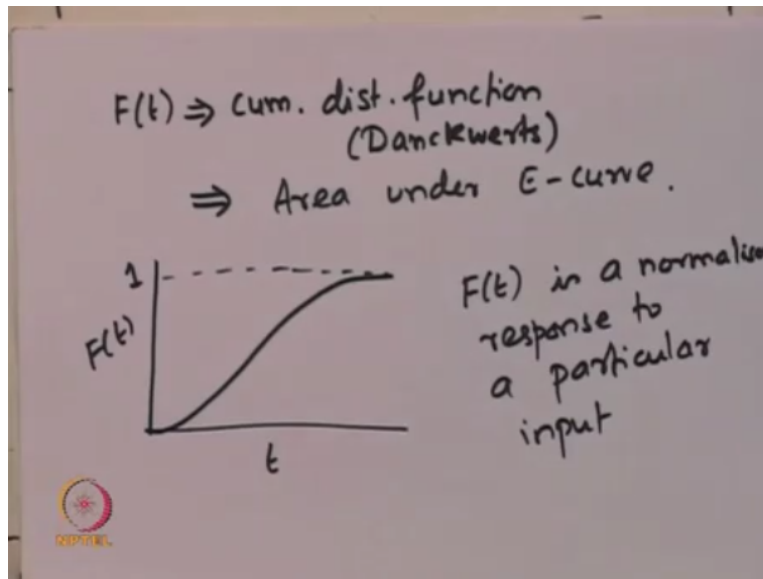 F(t) ⇒ cum. dist. function
(Danckwerts)
⇒ Area under E-curve.
1
F(t)
t
F(t) in a normalise
response to
a particular
input
NPTEL